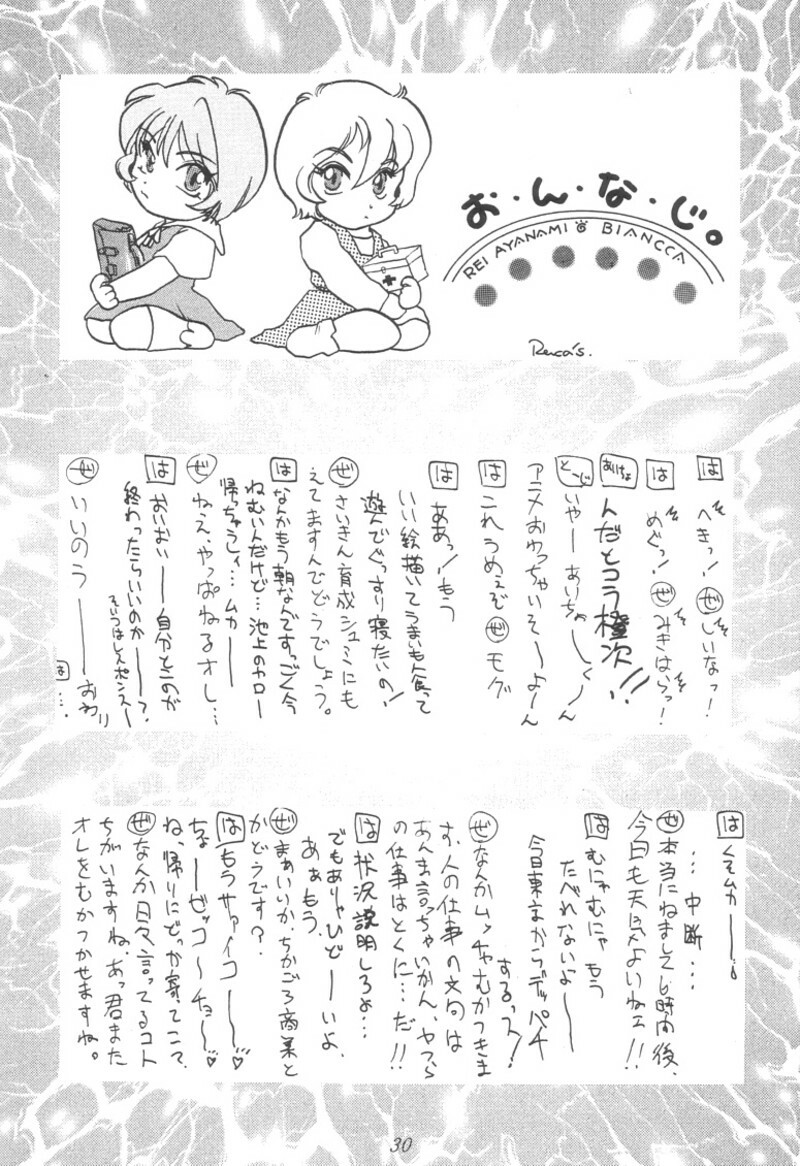 お・ん・な・じ。
REI AYANAMI BIANCCA
Reica's.
は へきっ! ぜ しいなっ!
は めぐっ! ぜ みきはらっ!
あけよ んだとコラ橙次!!
とーじ いやーあいちゃーんくーん
アニメおめっちゃいそーよーん
は これうめぇぞ ぜ モグ
は ああっ!もう
いい絵描いてうまいもん食って
遊んでぐっすり寝たいの!
ぜ さいきん育成シュミにも
えてますんでどうでしょう。
は なんかもう朝なんですっごく今
ねむいんだけど…池上のヤロー
帰っちゃうしィ…ムカー
ぜ ねえ、やっぱねるオレ…
は おいおいー自分とこのが
終わったらいいのかーー?
そいつはしえんポンスー
ぜ いいのうーーおわり
は …。
は くそムカーー!。
…中断…
ぜ 本当にねまして6時間後、
今日も天気よいねェ!!
は むにゃむにゃ もう
たべれないよーー
今日東京からデッパチ
するっス!
ぜ なんかムッチャむかつきま
す、人の仕事の文句は
あんま言っちゃいかん、ヤツら
の仕事はとくに…だ!!
は 状況説明しろよ…
でもありゃひどーいよ、
あぁもう。
ぜ まぁいいか、ちかごろ商業と
かどうです?
は もうサァーイコーーー♡
ちょーゼッコ〜チョ〜♡
ね、帰りにどっか寄てここて
ぜ なんか日々言ってるコト
ちがいますね。あっ君また
オレをむかつかせますね。
30